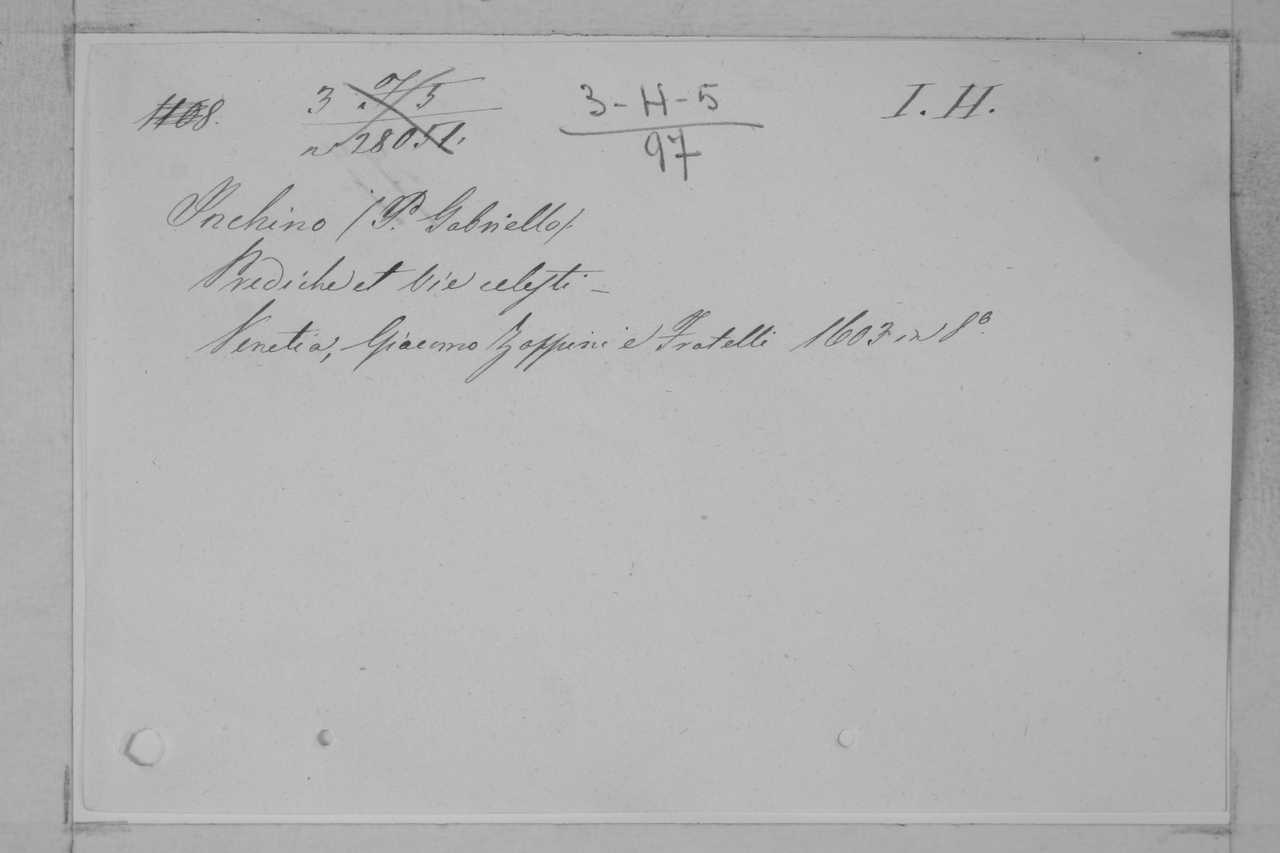 1108.
3 H 5
n 28051.
3-H-5
97
I. H.
Inchino (P. Gabriello)
Prediche et vie celesti _
Venetia, Giacomo Zoppini e Fratelli 1603 in 8º